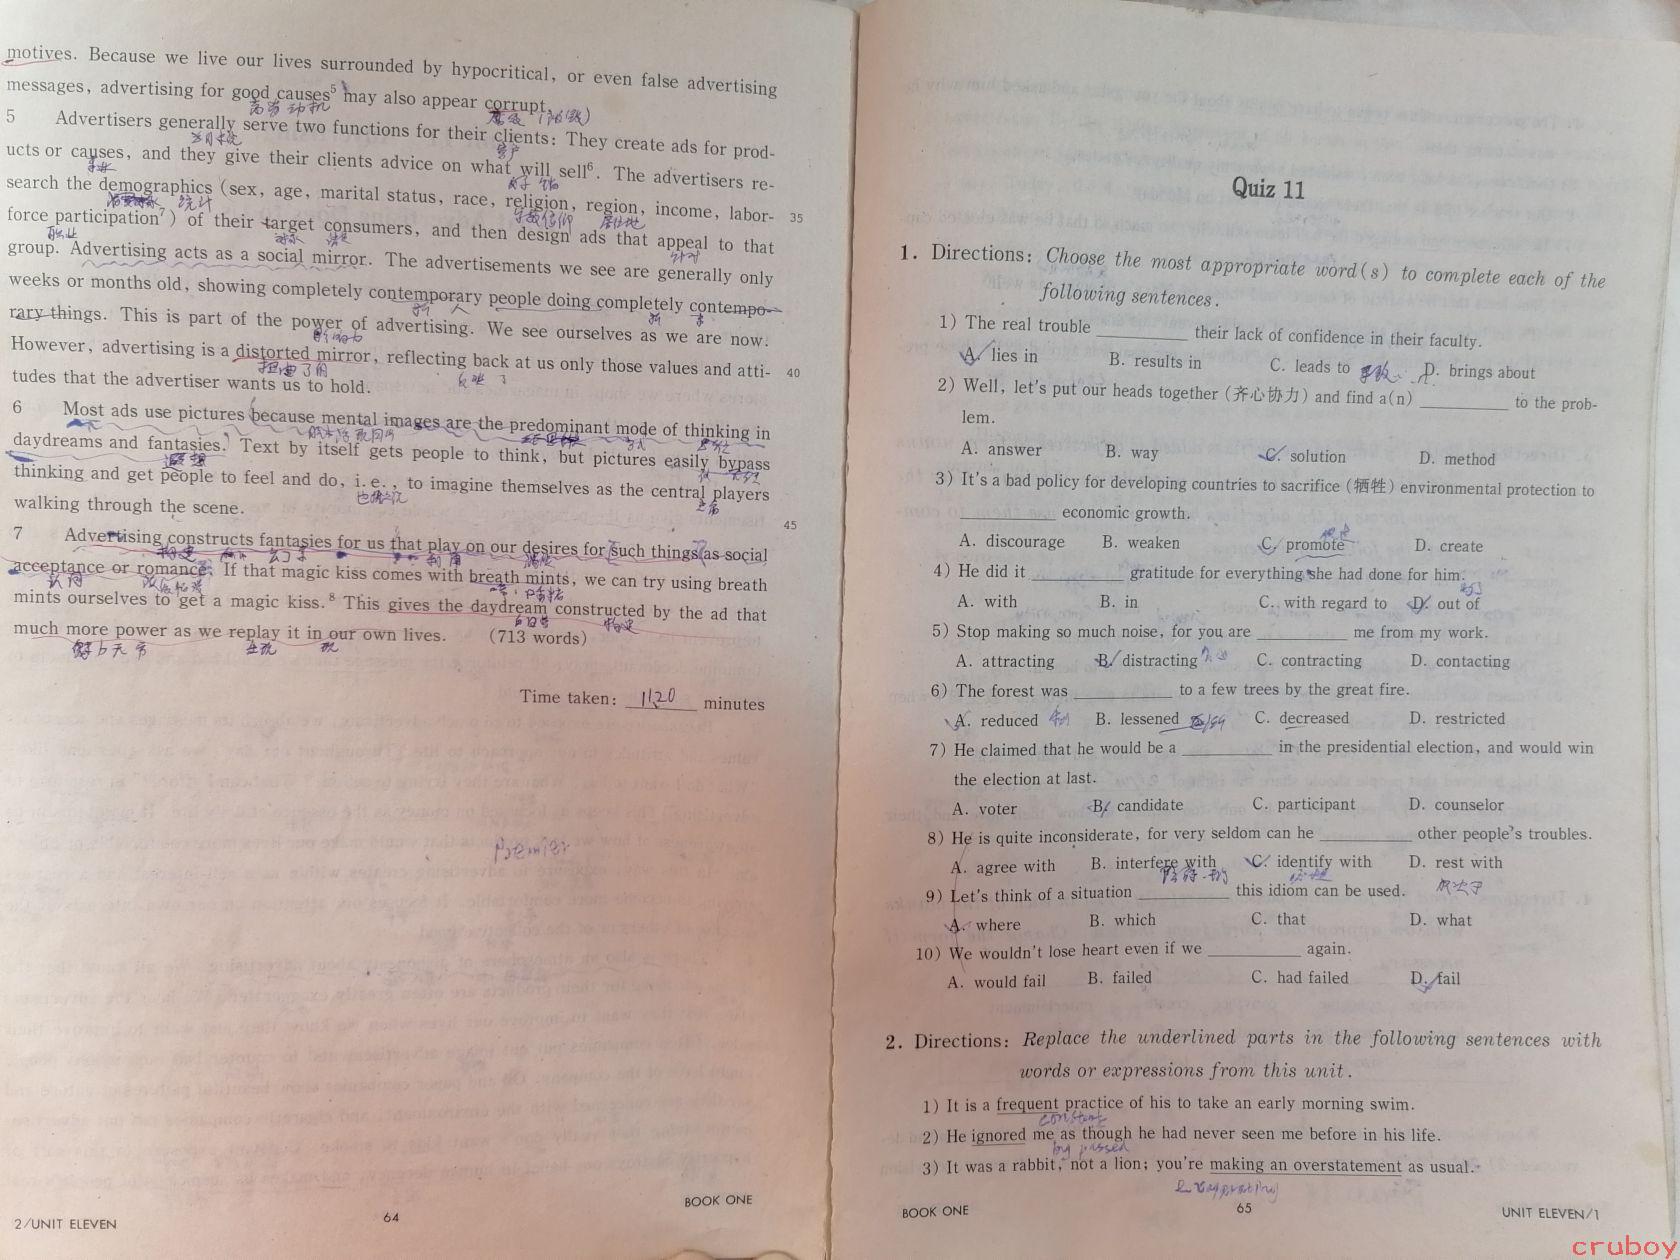 motives. Because we live our lives surrounded by hypocritical, or even false advertising
messages, advertising for good causes⁵ may also appear corrupt.
高尚动机
5 Advertisers generally serve two functions for their clients: They create ads for prod-
客户
ucts or causes, and they give their clients advice on what will sell⁶. The advertisers re-
search the demographics (sex, age, marital status, race, religion, region, income, labor- 35
统计 宗教信仰 居住地
force participation⁷) of their target consumers, and then design ads that appeal to that
职业 针对
group. Advertising acts as a social mirror. The advertisements we see are generally only
weeks or months old, showing completely contemporary people doing completely contempo-
新 人 新 事
rary things. This is part of the power of advertising. We see ourselves as we are now.
影响力
However, advertising is a distorted mirror, reflecting back at us only those values and atti- 40
扭曲了的 反映了
tudes that the advertiser wants us to hold.
6 Most ads use pictures because mental images are the predominant mode of thinking in
daydreams and fantasies. Text by itself gets people to think, but pictures easily bypass
遐想
thinking and get people to feel and do, i.e., to imagine themselves as the central players
也就是说 主角
walking through the scene.
45
7 Advertising constructs fantasies for us that play on our desires for such things as social
构建 利用 满足
acceptance or romance. If that magic kiss comes with breath mints, we can try using breath
认同
mints ourselves to get a magic kiss.⁸ This gives the daydream constructed by the ad that
白日梦 构建
much more power as we replay it in our own lives. (713 words)
Time taken: 11'20 minutes
Premier
2/UNIT ELEVEN 64 BOOK ONE
Quiz 11
1. Directions: Choose the most appropriate word(s) to complete each of the
following sentences.
1) The real trouble __________ their lack of confidence in their faculty.
A. lies in B. results in C. leads to 导致 D. brings about
2) Well, let's put our heads together (齐心协力) and find a(n) __________ to the prob-
lem.
A. answer B. way C. solution D. method
3) It's a bad policy for developing countries to sacrifice (牺牲) environmental protection to
__________ economic growth.
A. discourage B. weaken C. promote D. create
4) He did it __________ gratitude for everything she had done for him.
A. with B. in C. with regard to D. out of
5) Stop making so much noise, for you are __________ me from my work.
A. attracting B. distracting C. contracting D. contacting
6) The forest was __________ to a few trees by the great fire.
A. reduced B. lessened C. decreased D. restricted
7) He claimed that he would be a __________ in the presidential election, and would win
the election at last.
A. voter B. candidate C. participant D. counselor
8) He is quite inconsiderate, for very seldom can he __________ other people's troubles.
A. agree with B. interfere with C. identify with D. rest with
9) Let's think of a situation __________ this idiom can be used.
A. where B. which C. that D. what
10) We wouldn't lose heart even if we __________ again.
A. would fail B. failed C. had failed D. fail
2. Directions: Replace the underlined parts in the following sentences with
words or expressions from this unit.
1) It is a frequent practice of his to take an early morning swim.
constant
2) He ignored me as though he had never seen me before in his life.
by passed
3) It was a rabbit, not a lion; you're making an overstatement as usual.
BOOK ONE 65 UNIT ELEVEN/1
cruboy